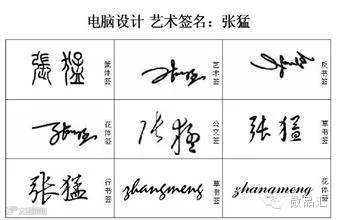 电脑设计 艺术签名：张猛
張猛 篆体签
张猛 艺术签
张猛 反书签
张猛 花体签
张猛 公文签
张猛 草书签
张猛 行书签
zhangmeng 草书签
zhangmeng 花体签
微品汇